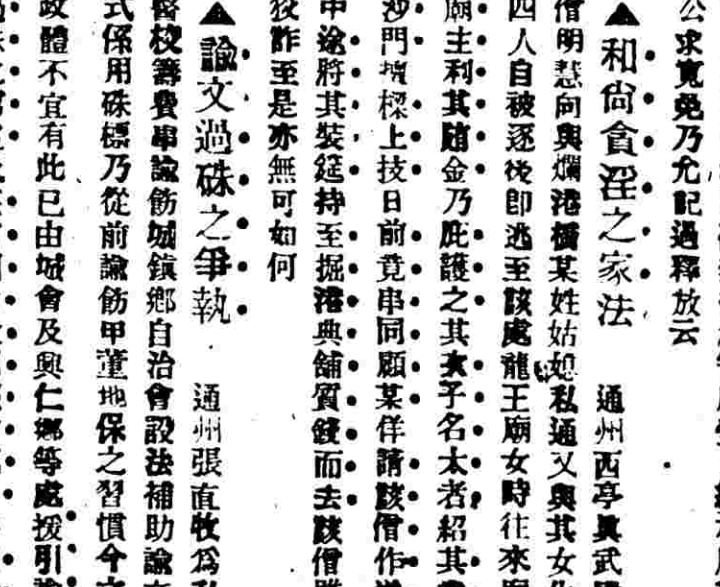 公求寬免乃允記過釋放云
▲和尙貪淫之家法 通州西亭眞武
僧明慧向與爛港橋某姓姑媳私通又與其女
四人自被逐後卽逃至該處龍王廟女時往來
廟主利其賄金乃庇護之其夫子名太者紹其
沙門 樑上技日前竟串同顧某佯請該僧作
中途將其裝 持至掘港典舖質錢而去該僧
狡詐至是亦無可如何
▲諭文過硃之爭執 通州張直牧爲
校籌費串諭飭城鎮鄉自治會設法補助諭
式係用硃標乃從前諭飭甲董地保之習慣今
政體不宜有此已由城會及興仁鄉等處援引